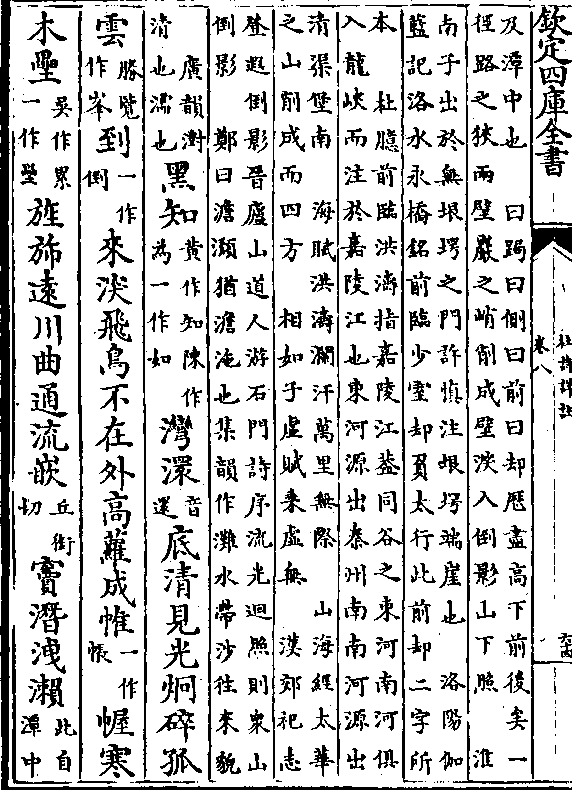 欽定四庫全書
杜詩詳註
卷八
及潭中也 曰蹋曰側曰前曰却歷盡高下前後矣一
徑路之狹兩壁巖之峭削成壁深入倒影山下照 淮
南子出於無垠堮之門許慎注垠堮端崖也 洛陽伽
藍記洛水永橋銘前臨少室却負太行此前却二字所
本 杜臆前臨洪濤指嘉陵江葢同谷之東河南河俱
入龍峽而注於嘉陵江也東河源出秦州南南河源出
清渠堡南 海賦洪濤瀾汗萬里無際 山海經太華
之山削成而四方 相如子虛賦乗虛無 漢郊祀志
登遐倒影晉廬山道人游石門詩序流光迴照則衆山
倒影 鄭曰澹瀬猶澹淹也集韻作灘水帶沙往來貌
廣韻澍清也濡也黑知黄作知陳作為一作如灣澴音還底清見光炯碎孤
雲勝覽作峯到一作倒來深飛鳥不在外高蘿成帷一作帳幄寒
木壘吳作累一作壘旌旆遠川曲通流嵌丘銜切竇潛洩瀨此自潭中